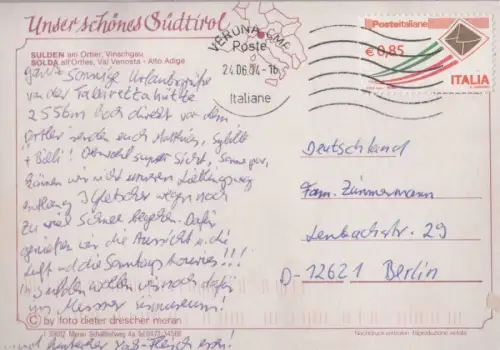 Unser schönes Südtirol
SULDEN am Ortler, Vinschgau
SOLDA all'Ortles, Val Venosta - Alto Adige
VERONA CMP
Poste
24.06.04-16
Italiane
Posteitaliane
€ 0,85
ITALIA
ganz sonnige Urlaubsgrüße
von der Tabarettahütte
2556m hoch direkt vor dem
Ortler senden euch Matthias, Sybille
+ Willi! Obwohl super Sicht, Sonne pur,
können wir nicht unseren Lieblingsweg
entlang Gletscher wegen noch
zu viel Schnee begehen. Dafür
genießen wir die Aussicht u. die
Luft und die
In Sulden wollen wir noch dafür
ins Messner Museum!
Deutschland
Fam. Zimmermann
Lenbachstr. 29
D-12621 Berlin
© by foto dieter drescher meran
I 39012 Meran Schaffelweg 4a Tel.
Nachdruck verboten Riproduzione vietata
und